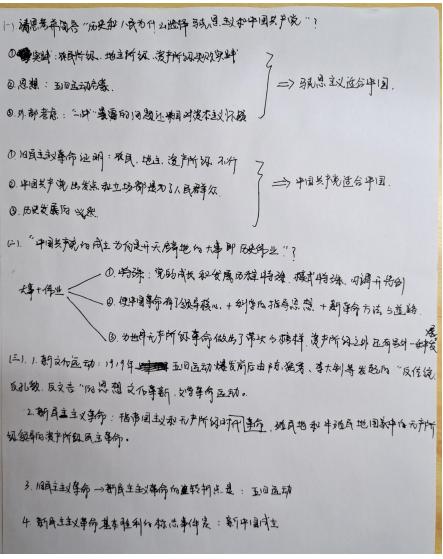 (一) 请思考并回答"历史和人民为什么选择马克思主义和中国共产党"?
①实践: 农民阶级、地主阶级、资产阶级失败实践
②思想: 五四运动启蒙. ⇒ 马克思主义适合中国.
③外部考虑: "一战"暴露的问题让中国对资本主义怀疑
①旧民主主义革命证明: 农民、地主、资产阶级不行
②中国共产党出发点和立场都是为了人民群众. ⇒ 中国共产党适合中国.
③历史发展的必然
(二). "中国共产党的成立为何是开天辟地的大事即历史伟业"?
①. 特殊: 党的成长和发展历程特殊、模式特殊、可谓开先例
大事+伟业 ②. 使中国革命有了领导核心, + 科学的指导思想 + 新革命方法与道路.
③. 为世界无产阶级革命做出了带头的榜样, 资产阶级之外还有另外一种
(三) 1. 新文化运动: 1919年五四运动爆发前后由陈独秀、李大钊等发起的"反传统,
反孔教, 反文言"的思想文化革新、文学革命运动。
2. 新民主主义革命: 指帝国主义和无产阶级的时代革命, 殖民地和半殖民地国家中的无产阶
级领导的资产阶级民主革命。
3. 旧民主主义革命→新民主主义革命的转折点是: 五四运动
4. 新民主主义革命基本胜利的标志事件是: 新中国成立